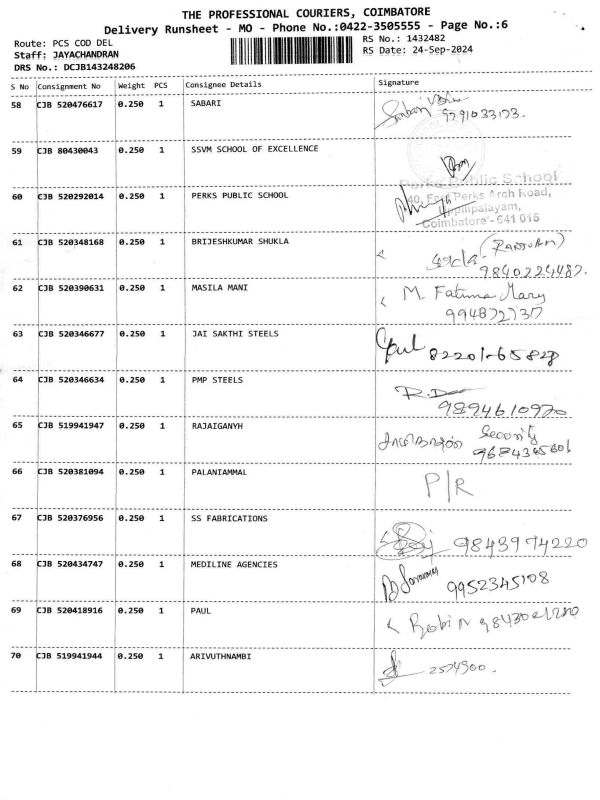 THE PROFESSIONAL COURIERS, COIMBATORE
Delivery Runsheet - MO - Phone No.:0422-3505555 - Page No.:6
Route: PCS COD DEL
RS No.: 1432482
Staff: JAYACHANDRAN
RS Date: 24-Sep-2024
DRS No.: DCJB143248206
S No Consignment No Weight PCS Consignee Details Signature
58 CJB 520476617 0.250 1 SABARI
59 CJB 80430043 0.250 1 SSVM SCHOOL OF EXCELLENCE
Perks Public School
60 CJB 520292014 0.250 1 PERKS PUBLIC SCHOOL
Perks Arch Road,
Uppilipalayam,
Coimbatore - 641 015
61 CJB 520348168 0.250 1 BRIJESHKUMAR SHUKLA
9840224487.
62 CJB 520390631 0.250 1 MASILA MANI M. Fatima Mary
63 CJB 520346677 0.250 1 JAI SAKTHI STEELS 82201-65828
64 CJB 520346634 0.250 1 PMP STEELS
9894610970
65 CJB 519941947 0.250 1 RAJAIGANYH Security
66 CJB 520381094 0.250 1 PALANIAMMAL P/R
67 CJB 520376956 0.250 1 SS FABRICATIONS
9843974220
68 CJB 520434747 0.250 1 MEDILINE AGENCIES
9952345108
69 CJB 520418916 0.250 1 PAUL Robin
70 CJB 519941944 0.250 1 ARIVUTHNAMBI
2574900.